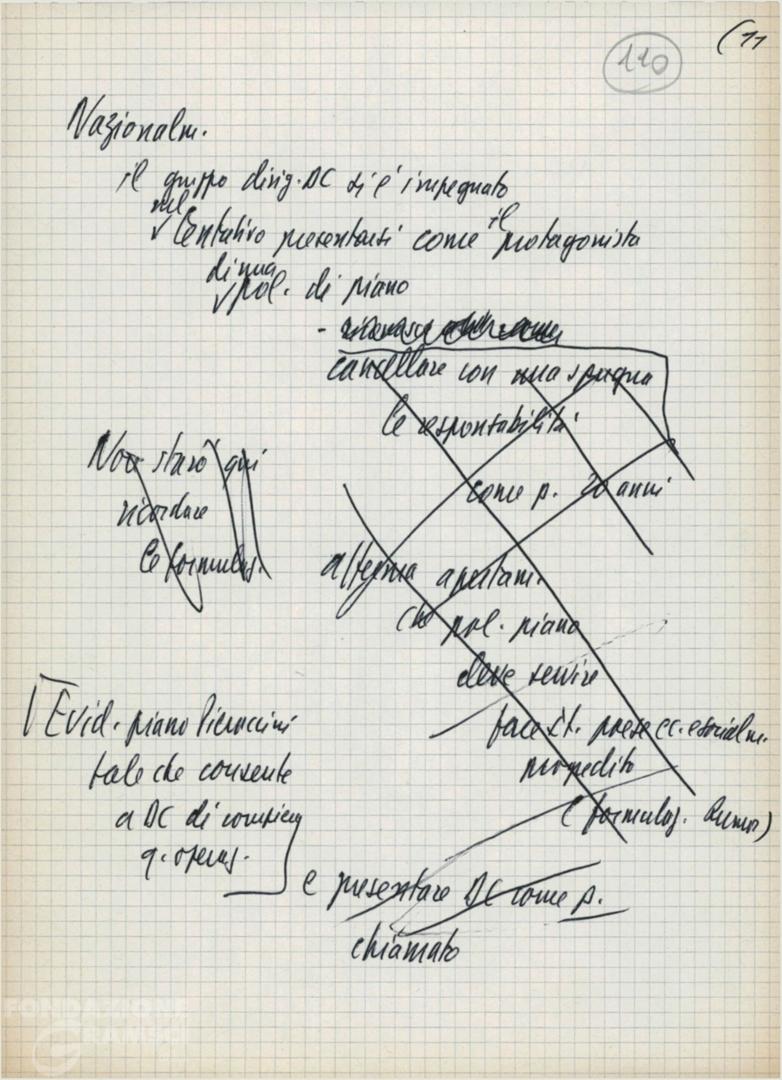 (11
110
Nazionalm.
il gruppo dirig. DC si è impegnato
nel
tentativo presentarsi come il protagonista
di una
pol. di piano
-
cancellare con una spugna
le responsabilità
come p. 20 anni
Non starò qui
ricordare
le formulaz.
afferma apertam.
che pol. piano
deve servire
fare It. paese ec. e socialm.
progredito
(formulaz. Rumor)
Evid. piano Pieraccini
tale che consente
a DC di compiere
q. operaz.
e presentare DC come p.
chiamato
FONDAZIONE
GRAMSCI